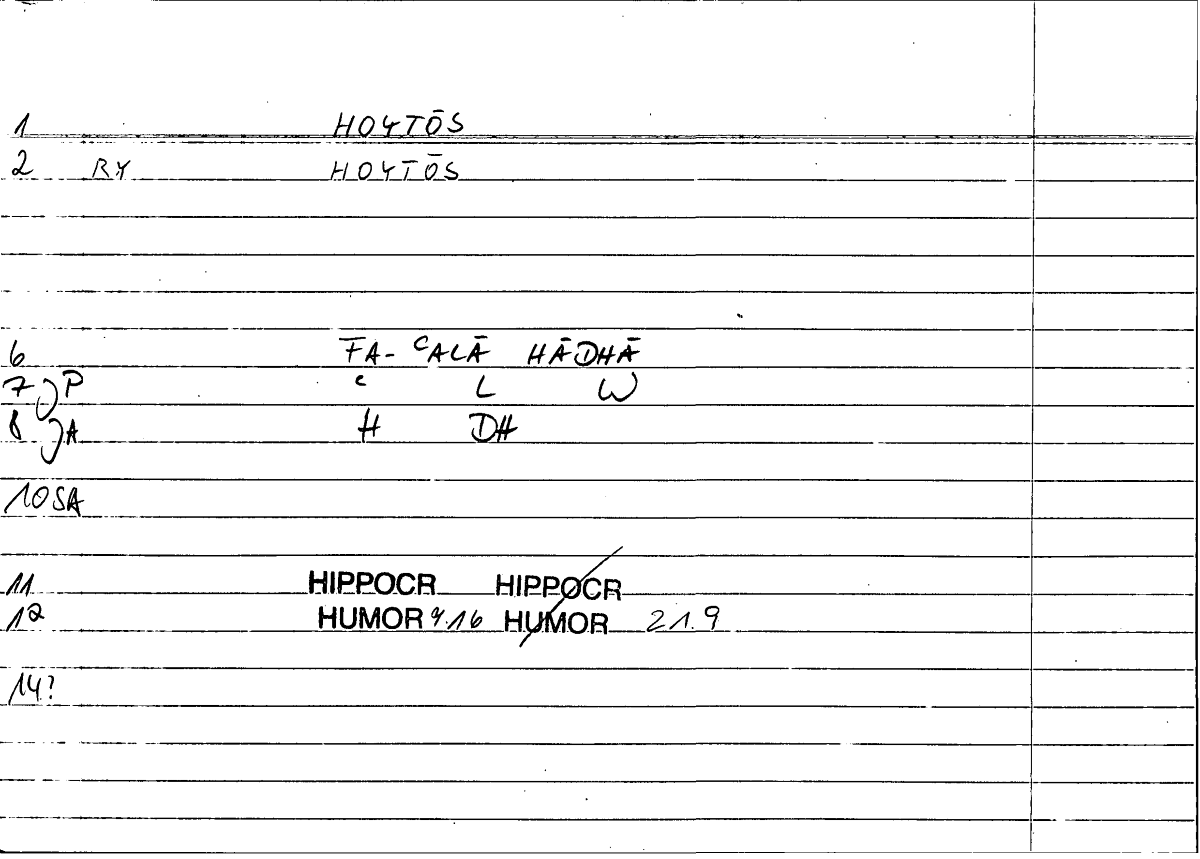 1 HOYTŌS
2 RY HOYTŌS
6 FA- ᶜALĀ HĀDHĀ
7 P ᶜ L W
8 A H DH
10 SA
11 HIPPOCR HIPPOCR
12 HUMOR 4.16 HUMOR 21.9
14?